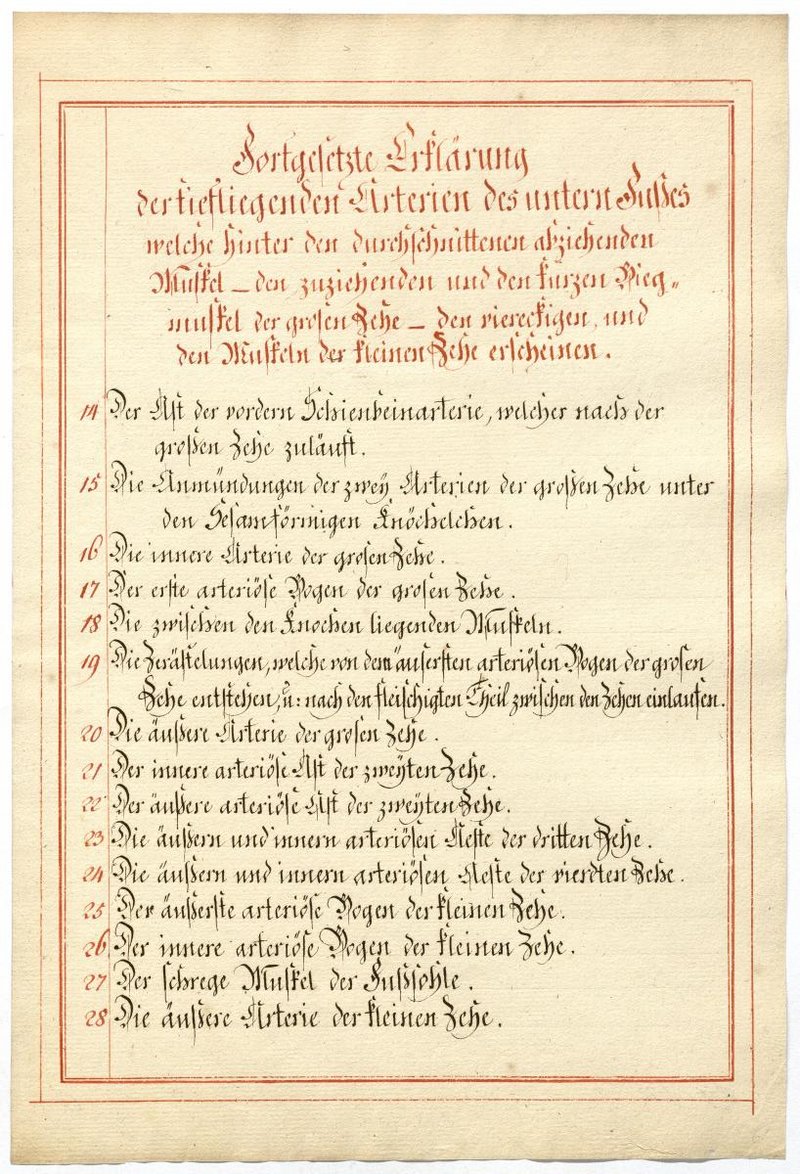 Fortgesetzte Erklärung
der tiefliegenden Arterien des untern Fußes
welche hinter den durchschnittenen abziehenden
Muskel – den zuziehenden und den kurzen Bieg„
muskel der grosen Zehe – den viereckigen, und
den Muskeln der kleinen Zehe erscheinen.
14 Der Ast der vordern Schienbeinarterie, welcher nach der
großen Zehe zuläuft.
15 Die Anmündungen der zwey Arterien der großen Zehe unter
den Sesamförmigen Knöchelchen.
16 Die innere Arterie der grosen Zehe.
17 Der erste arteriöse Bogen der grosen Zehe.
18 Die zwischen den Knochen liegenden Muskeln.
19 Die Zerästelungen, welche von dem äusersten arteriösen Bogen der grosen
Zehe entstehen, u: nach den fleischigten Theil zwischen den Zehen einlaufen.
20 Die äußere Arterie der grosen Zehe.
21 Der innere arteriöse Ast der zweyten Zehe.
22 Der äußere arteriöse Ast der zweyten Zehe.
23 Die äußern und innern arteriösen Aeste der dritten Zehe.
24 Die äußern und innern arteriösen Aeste der vierdten Zehe.
25 Der äußerste arteriöse Bogen der kleinen Zehe.
26 Der innere arteriöse Bogen der kleinen Zehe.
27 Der schrege Muskel der Fußsohle.
28 Die äußere Arterie der kleinen Zehe.